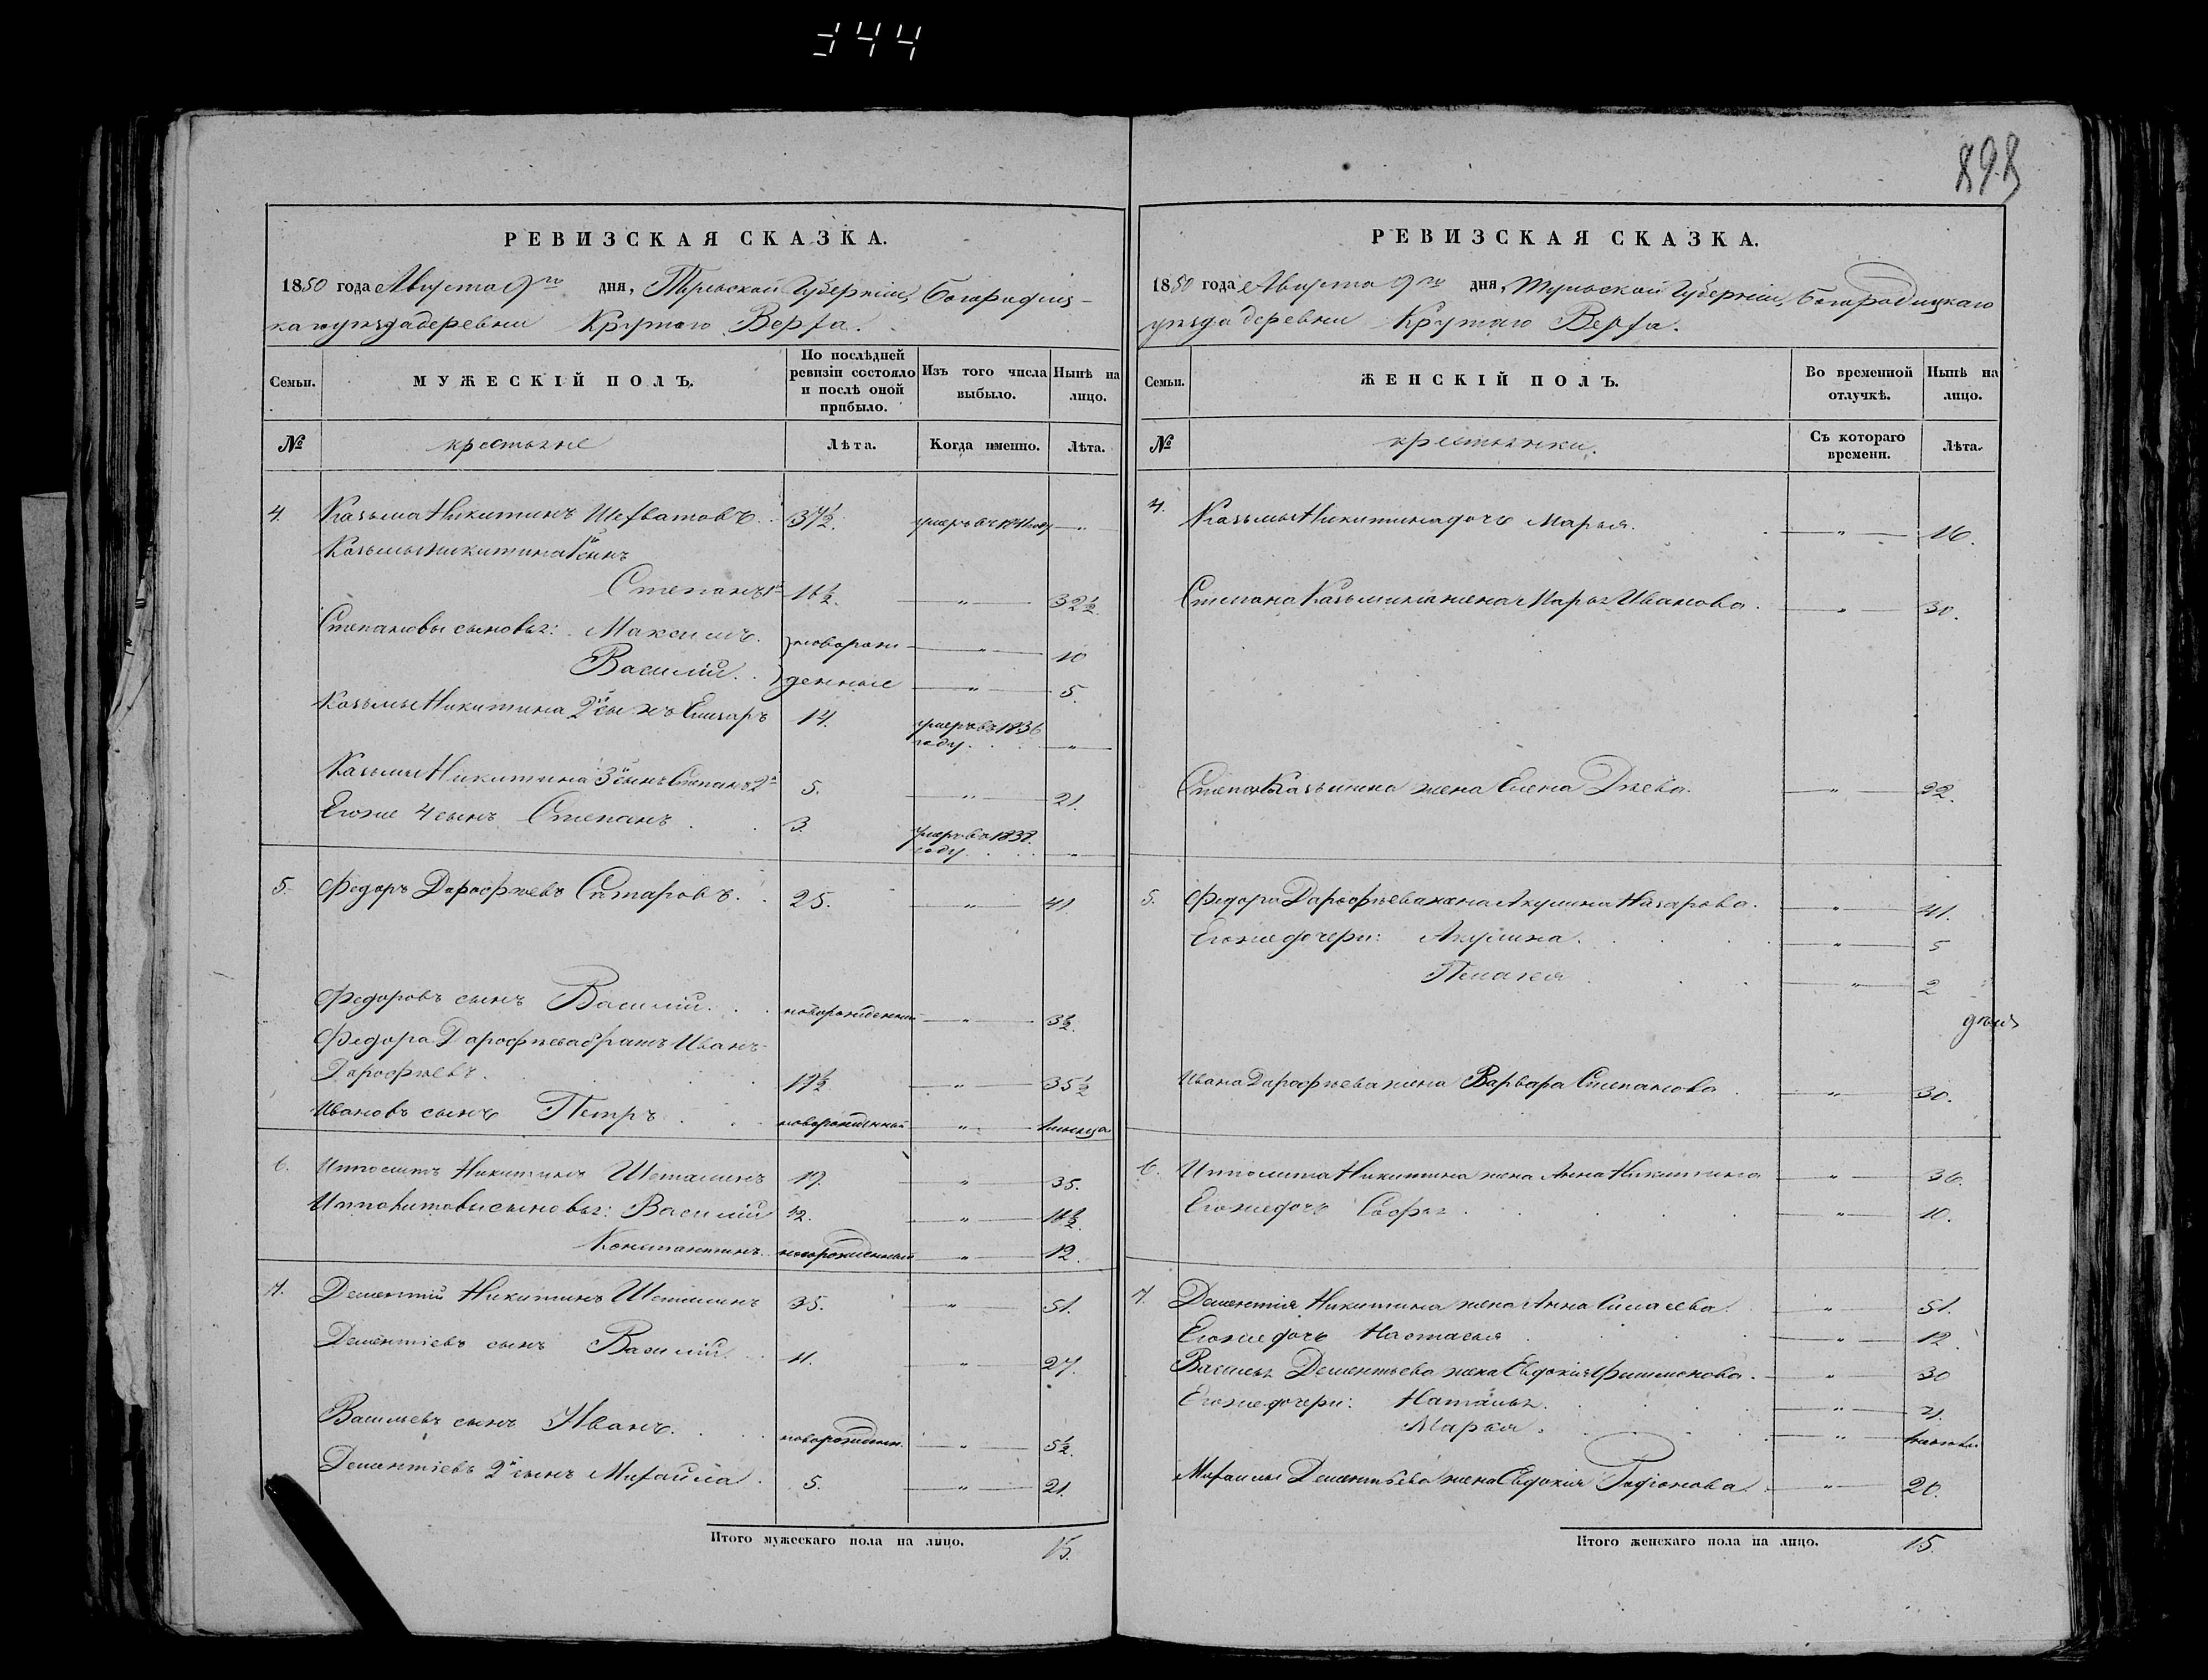 344
893
РЕВИЗСКАЯ СКАЗКА.
1850 года Августа 9го дня, Тульской Губерніи, Богородиц-
каго уѣзда деревни Крутаго Верха.
Семьи.
МУЖЕСКІЙ ПОЛЪ.
По послѣдней ревизіи состояло и послѣ оной прибыло.
Изъ того числа выбыло.
Нынѣ на лицо.
№
крестьяне
Лѣта.
Когда именно.
Лѣта.
4. Казьма Никитинъ 37½. умеръ въ году — „
Казьмы Никитина 1й сынъ
Степанъ 1й 16½. — „ — 32½.
Степановы сыновья: Максимъ. новорож — „ — 10
Василій. денные — „ — 5.
Казьмы Никитина 2й сынъ Елизаръ 14. умеръ въ 1836
году. — „
Казьмы Никитина 3й сынъ Степанъ 2й 5. — „ — 21.
Егоже 4 сынъ Степанъ 3. умеръ въ 1838.
году. — „
5. Федоръ Дорофѣевъ 25. — „ — 41
Федоровъ сынъ Василій. новорожденный — „ — 3½.
Федора Дорофѣева братъ Иванъ
Дорофѣевъ. 19½ — „ — 35½
Ивановъ сынъ Петръ новорожденный — „ — 1 мѣсяца
6. Ипполитъ Никитинъ Шеталинъ 19. — „ — 35.
Ипполитовы сыновья: Василій ½. — „ — 16½.
Константинъ. новорожденный — „ — 12.
7. Дементій Никитинъ Шеталинъ 35. — „ — 51.
Дементіевъ сынъ Василій. 11. — „ — 27.
Васильевъ сынъ Иванъ. новорожден. — „ — 5½.
Дементіевъ 2й сынъ Михайла. 5. — „ — 21.
Итого мужескаго пола на лицо. 15.
РЕВИЗСКАЯ СКАЗКА.
1850 года Августа 9го дня, Тульской Губерніи, Богородицкаго
уѣзда деревни Крутаго Верха.
Семьи.
ЖЕНСКІЙ ПОЛЪ.
Во временной отлучкѣ.
Нынѣ на лицо.
№
крестьянки.
Съ котораго времени.
Лѣта.
4. Казьмы Никитина дочь Марья. — „ — 16.
Степана Казьмина жена Марья Иванова. — „ — 30.
Степана Казьмина жена Елена — „ — 22.
5. Федора Дорофѣева жена Акулина Назарова. — „ — 41.
Егоже дочери: Акулина. — „ — 5
Пелагея — „ — 2
Ивана Дорофѣева жена Варвара Степанова — „ — 30.
6. Ипполита Никитина жена Анна Никитина — „ — 36.
Егоже дочь Софья — „ — 10.
7. Дементія Никитина жена Анна — „ — 51.
Егоже дочь Настасья — „ — 12.
Василья Дементьева жена Евдокія Филимонова. — „ — 30
Егоже дочери: Наталья. — „ —
Марья. — „ —
Михаилы Дементьева жена Евдокія Родіонова. — „ — 20.
Итого женскаго пола на лицо. 15.